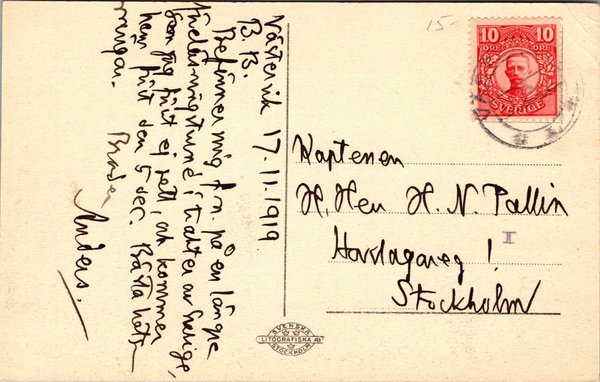 Västervik 17.11.1919
B.B.
Befinner mig f.n. på en längre
i trakter av Sverige,
som jag förut ej sett, och kommer
hem först den 5 dec. Bästa häls-
ningar.
Broder
Anders.
15-
10 10
ÖRE ÖRE
SVERIGE
Kaptenen
H. Herr H. N. Pallin
I
Stockholm
SVENSKA
LITOGRAFISKA AB
STOCKHOLM